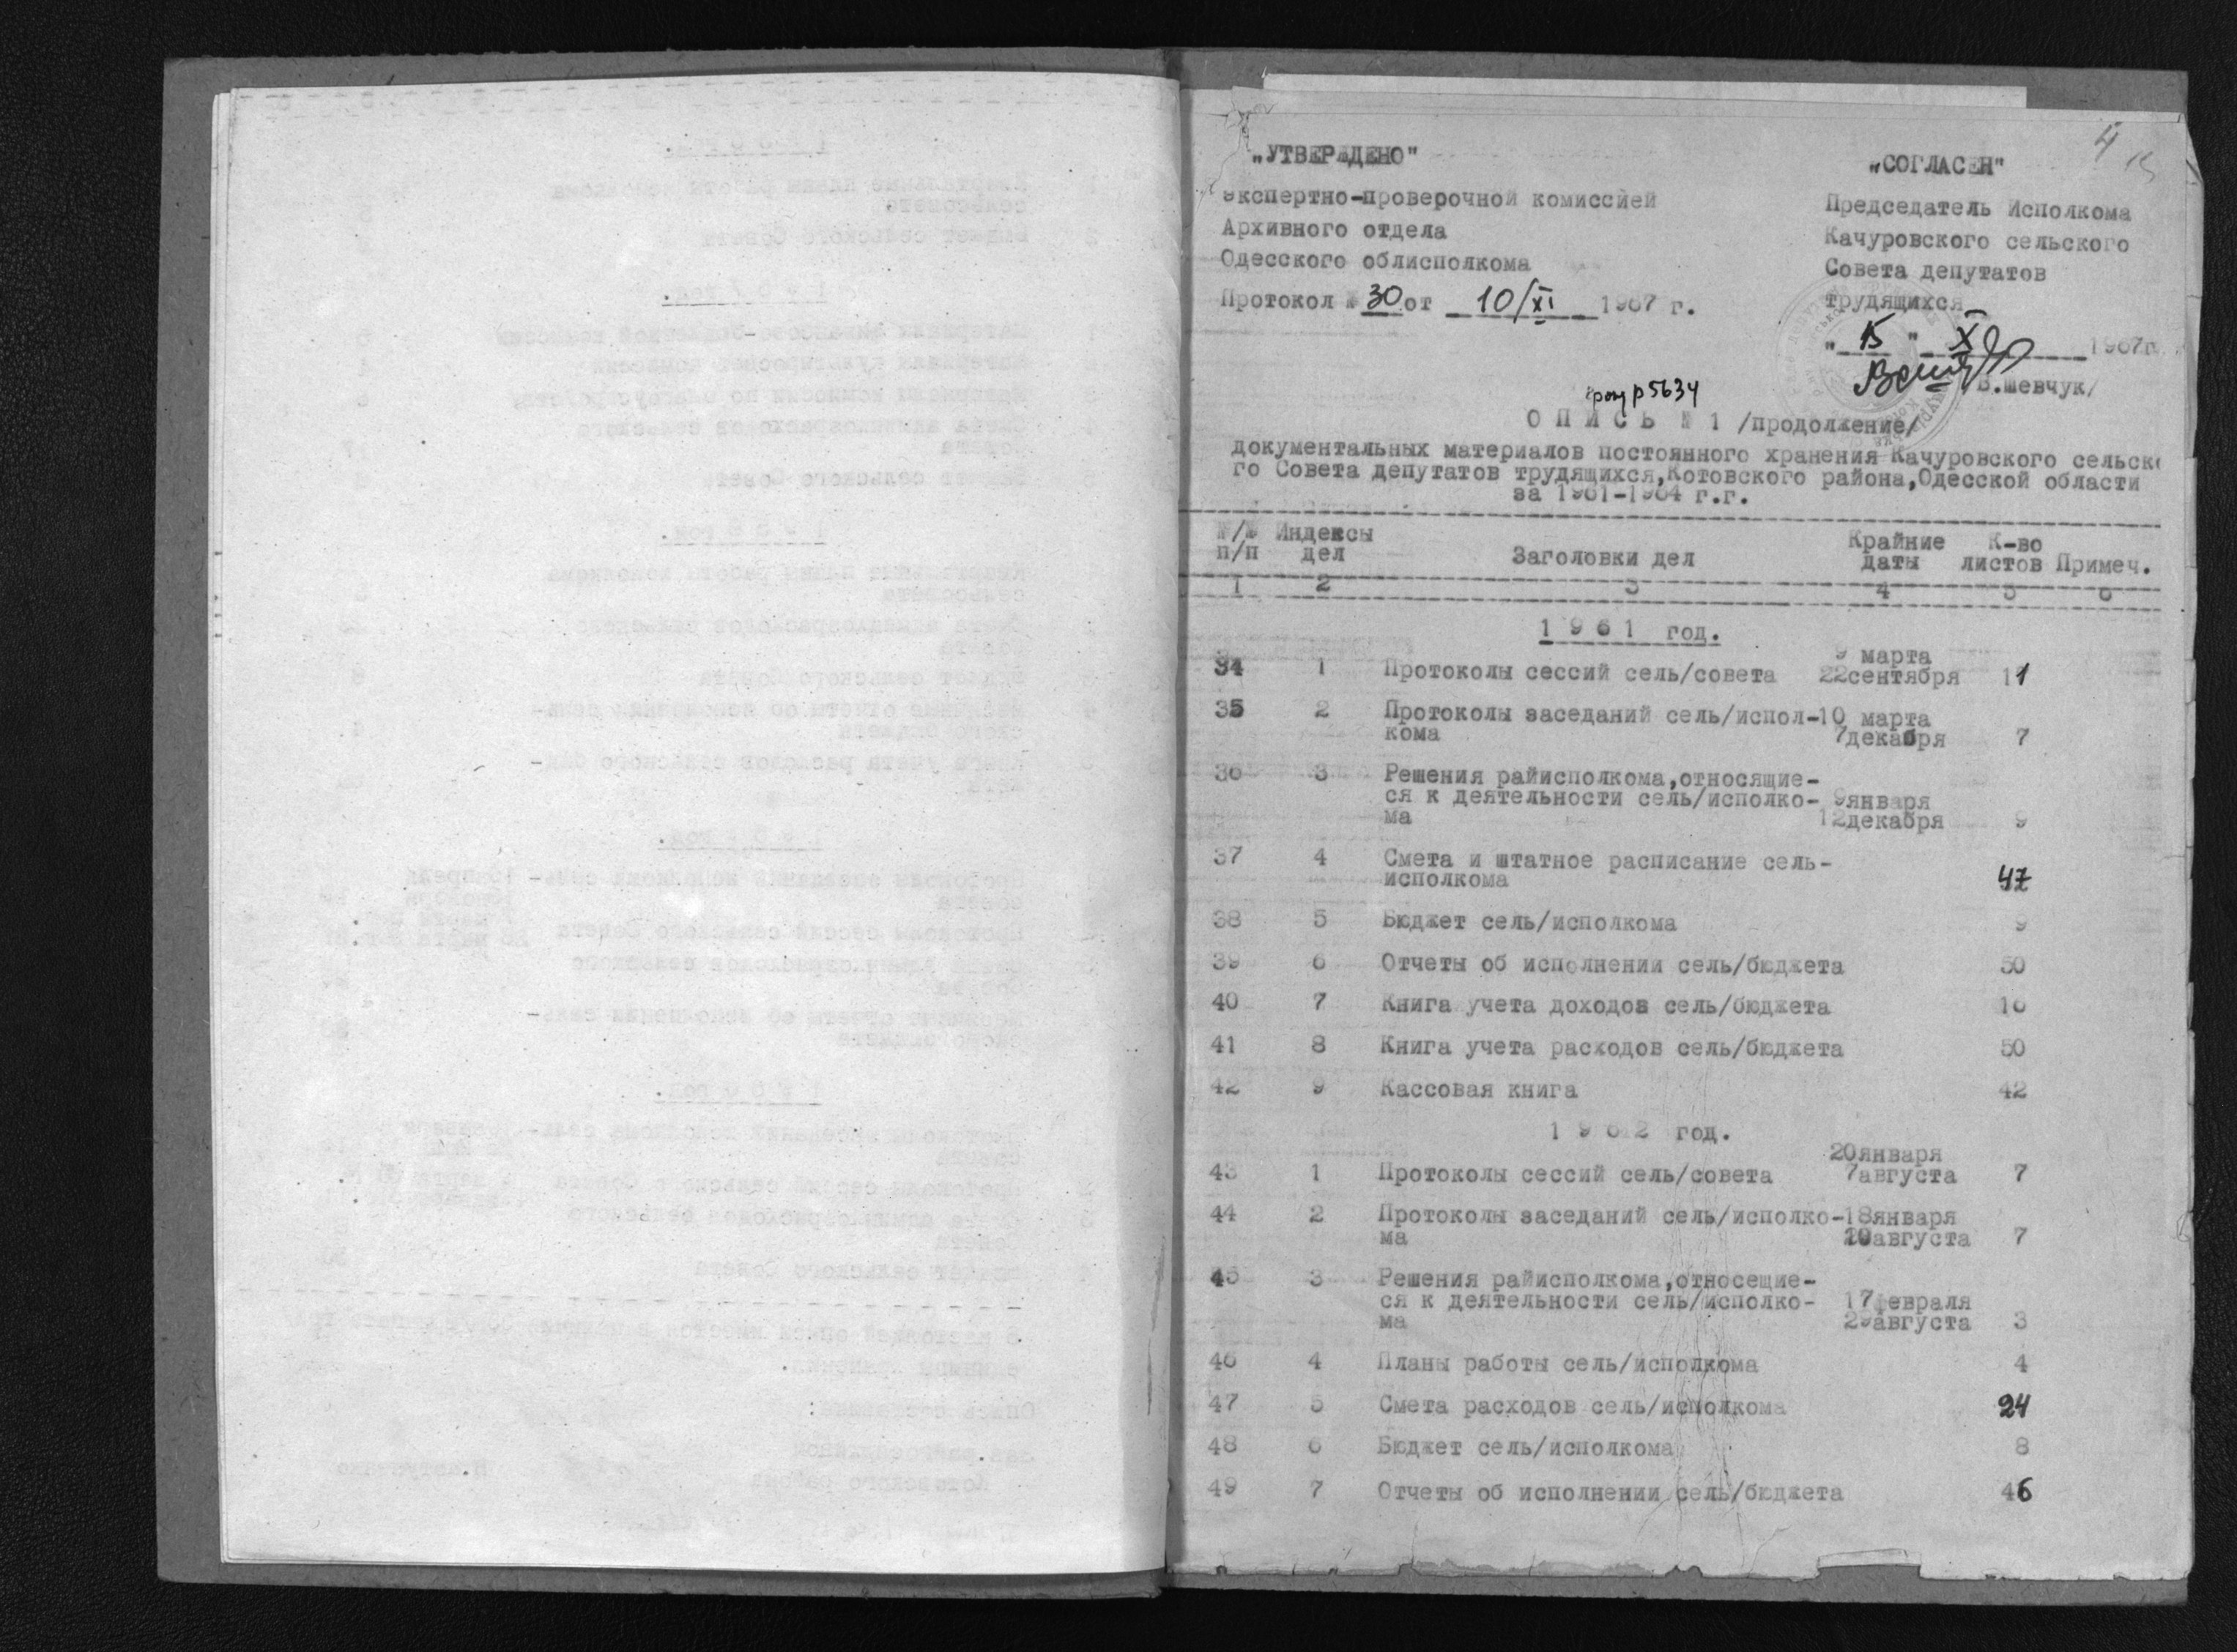 4
„УТВЕРЖДЕНО"
экспертно-проверочной комиссией
Архивного отдела
Одесского облисполкома
Протокол № 30 от 10/XI 1967 г.
„СОГЛАСЕН"
Председатель Исполкома
Качуровского сельского
Совета депутатов
трудящихся
„ 15 " X 1967г
В.Шевчук/
фонд р5634
О П И С Ь № 1 /продолжение/
документальных материалов постоянного хранения Качуровского сельско
го Совета депутатов трудящихся,Котовского района,Одесской области
за 1961-1964 г.г.
№/№ Индексы Крайние К-во
п/п дел Заголовки дел даты листов Примеч.
1 2 3 4 5 6
1 9 6 1 год.
9 марта
34 1 Протоколы сессий сель/совета 22сентября 11
35 2 Протоколы заседаний сель/испол-10 марта
кома 7декабря 7
36 3 Решения райисполкома,относящие-
ся к деятельности сель/исполко- 9января
ма 12декабря 9
37 4 Смета и штатное расписание сель-
исполкома 47
38 5 Бюджет сель/исполкома 9
39 6 Отчеты об исполнении сель/бюджета 50
40 7 Книга учета доходов сель/бюджета 16
41 8 Книга учета расходов сель/бюджета 50
42 9 Кассовая книга 42
1 9 6 2 год.
20января
43 1 Протоколы сессий сель/совета 7августа 7
44 2 Протоколы заседаний сель/исполко-18января
ма августа 7
45 3 Решения райисполкома,относещие-
ся к деятельности сель/исполко- 17февраля
ма 29августа 3
46 4 Планы работы сель/исполкома 4
47 5 Смета расходов сель/исполкома 24
48 6 Бюджет сель/исполкома 8
49 7 Отчеты об исполнении сель/бюджета 46